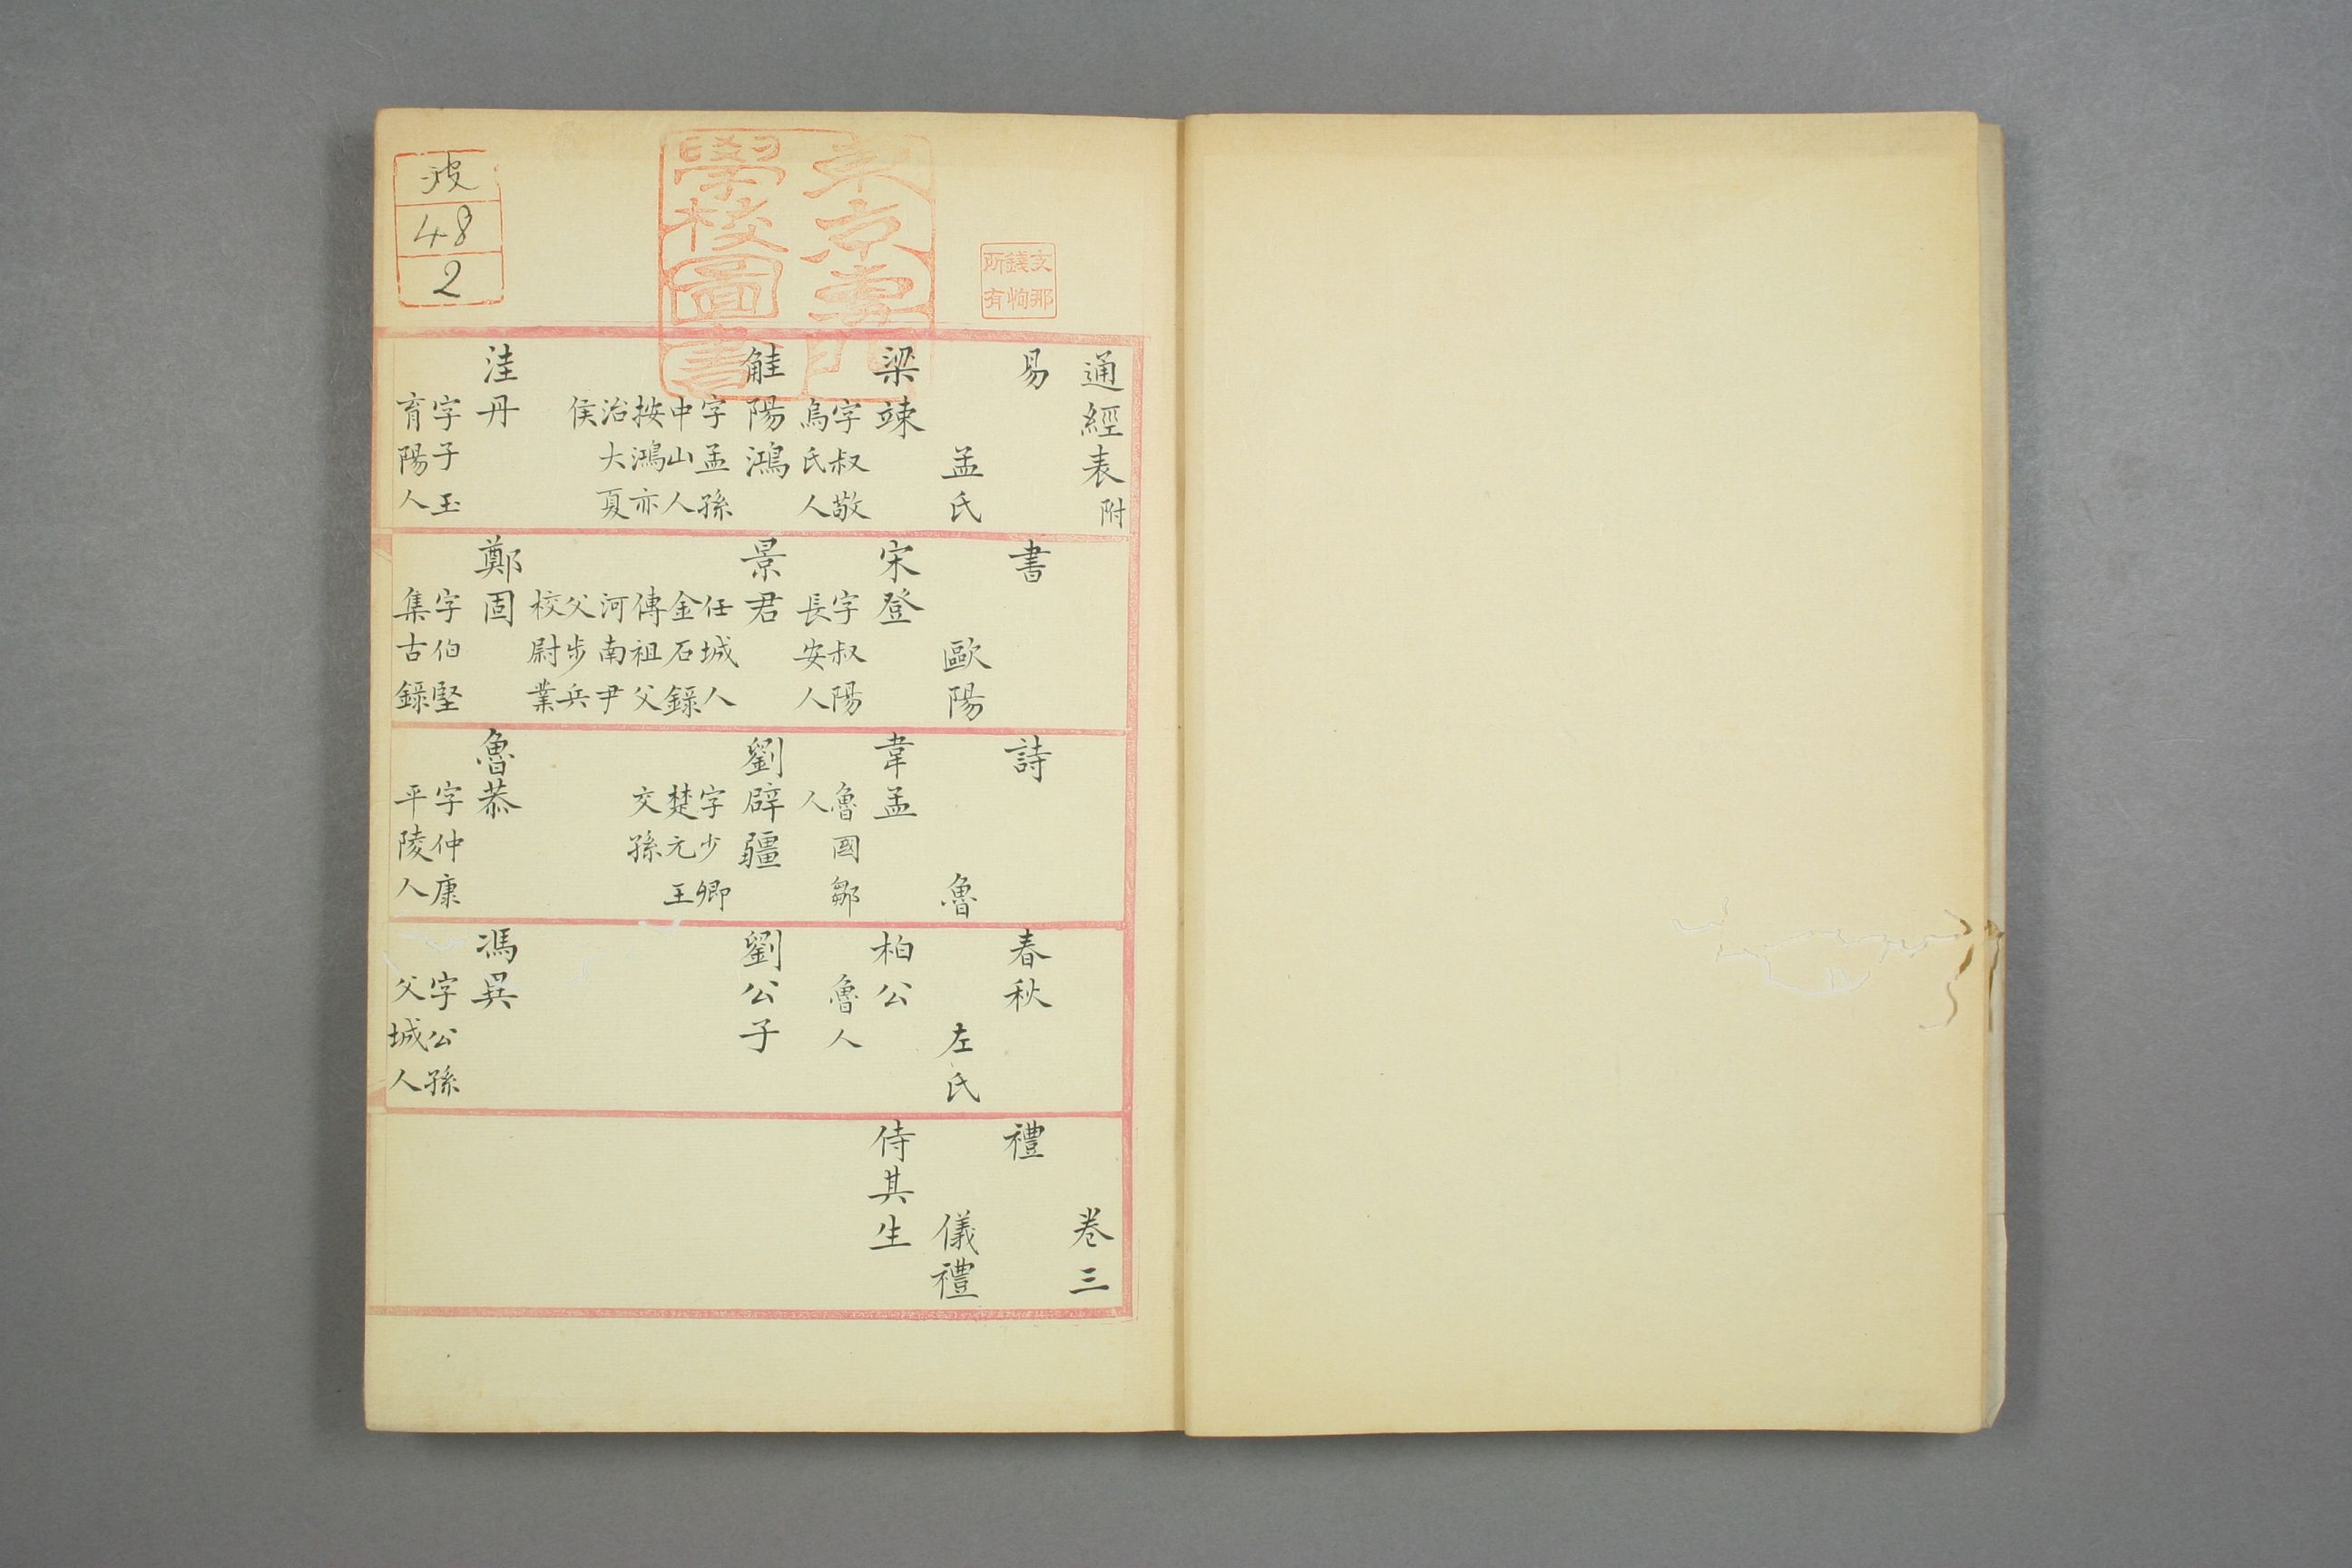 通經表附
卷三
易
孟氏
梁竦
字叔敬
烏氏人
觟陽鴻
字孟孫
中山人
按鴻亦
治大夏
侯
洼丹
字子玉
育陽人
書
歐陽
宋登
字叔陽
長安人
景君
任城人
金石錄
傳祖父
河南尹
父步兵
校尉業
鄭固
字伯堅
集古錄
詩
魯
韋孟
魯國鄒
人
劉辟疆
字少卿
楚元王
交孫
魯恭
字仲康
平陵人
春秋
左氏
柏公
魯人
劉公子
馮異
字公孫
父城人
禮
儀禮
侍其生
48
2
東京專門
學校圖書
文那
錢恂
所有